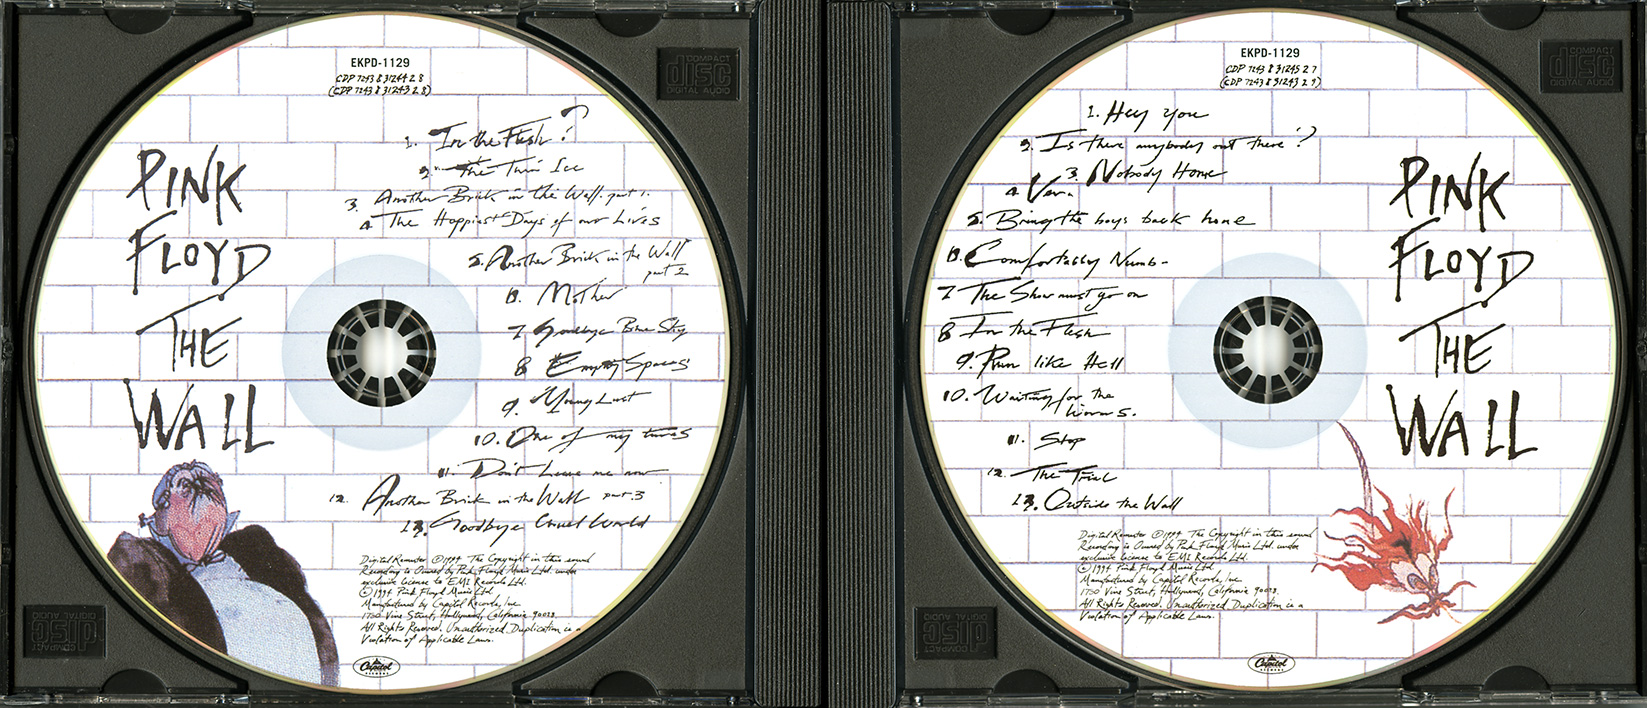 EKPD-1129
CDP 7243 8 31244 2 8
(CDP 7243 8 31243 2 9)
1. In the Flesh?
2. The Thin Ice
3. Another Brick in the Wall. part 1.
4. The Happiest Days of our Lives
5. Another Brick in the Wall
part 2
6. Mother
7 Goodbye Blue Sky
8 Empty Spaces
9. Young Lust
10. One of my turns
11. Don't Leave me now
12. Another Brick in the Wall part 3
13. Goodbye Cruel World
PINK
FLOYD
THE
WALL
Digital Remaster ℗1994 The Copyright in this sound
Recording is Owned by Pink Floyd Music Ltd. under
exclusive license to EMI Records Ltd.
© 1994 Pink Floyd Music Ltd
Manufactured by Capitol Records, Inc
1750 Vine Street, Hollywood, California 90028.
All Rights Reserved. Unauthorized Duplication is a
Violation of Applicable Laws.
Capitol
RECORDS
COMPACT
disc
DIGITAL AUDIO
COMPACT
disc
DIGITAL AUDIO
EKPD-1129
CDP 7243 8 31245 2 7
(CDP 7243 8 31243 2 9)
1. Hey You
2. Is there anybody out there?
3. Nobody Home
4. Vera
5. Bring the boys back home
6. Comfortably Numb
7 The Show must go on
8 In the Flesh
9. Run like Hell
10. Waiting for the
Worms.
11. Stop
12. The Trial
13. Outside the Wall
PINK
FLOYD
THE
WALL
Digital Remaster ℗1994 The Copyright in this sound
Recording is Owned by Pink Floyd Music Ltd. under
exclusive license to EMI Records Ltd.
© 1994 Pink Floyd Music Ltd
Manufactured by Capitol Records, Inc
1750 Vine Street, Hollywood, California 90028.
All Rights Reserved. Unauthorized Duplication is a
Violation of Applicable Laws.
Capitol
RECORDS
COMPACT
disc
DIGITAL AUDIO
COMPACT
disc
DIGITAL AUDIO